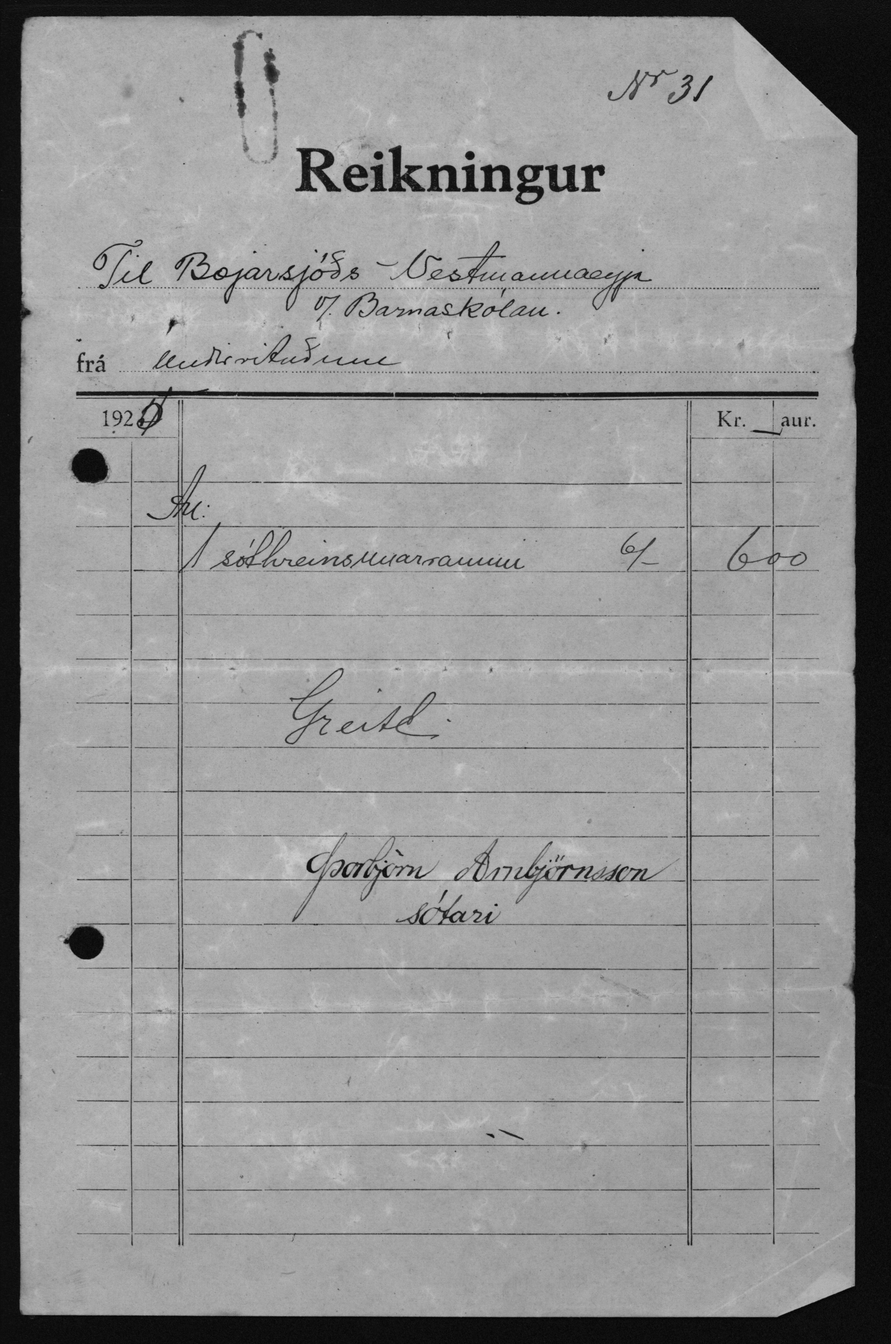 Nr 31
Reikningur
Til Bæjarsjóðs Vestmannaeyja
v/. Barnaskólan.
frá undirrituðum
192 Kr. aur.
An:
1 sóthreinsunarrammi 6/- 6 00
Greitt.
Þorbjörn Arnbjörnsson
sótari